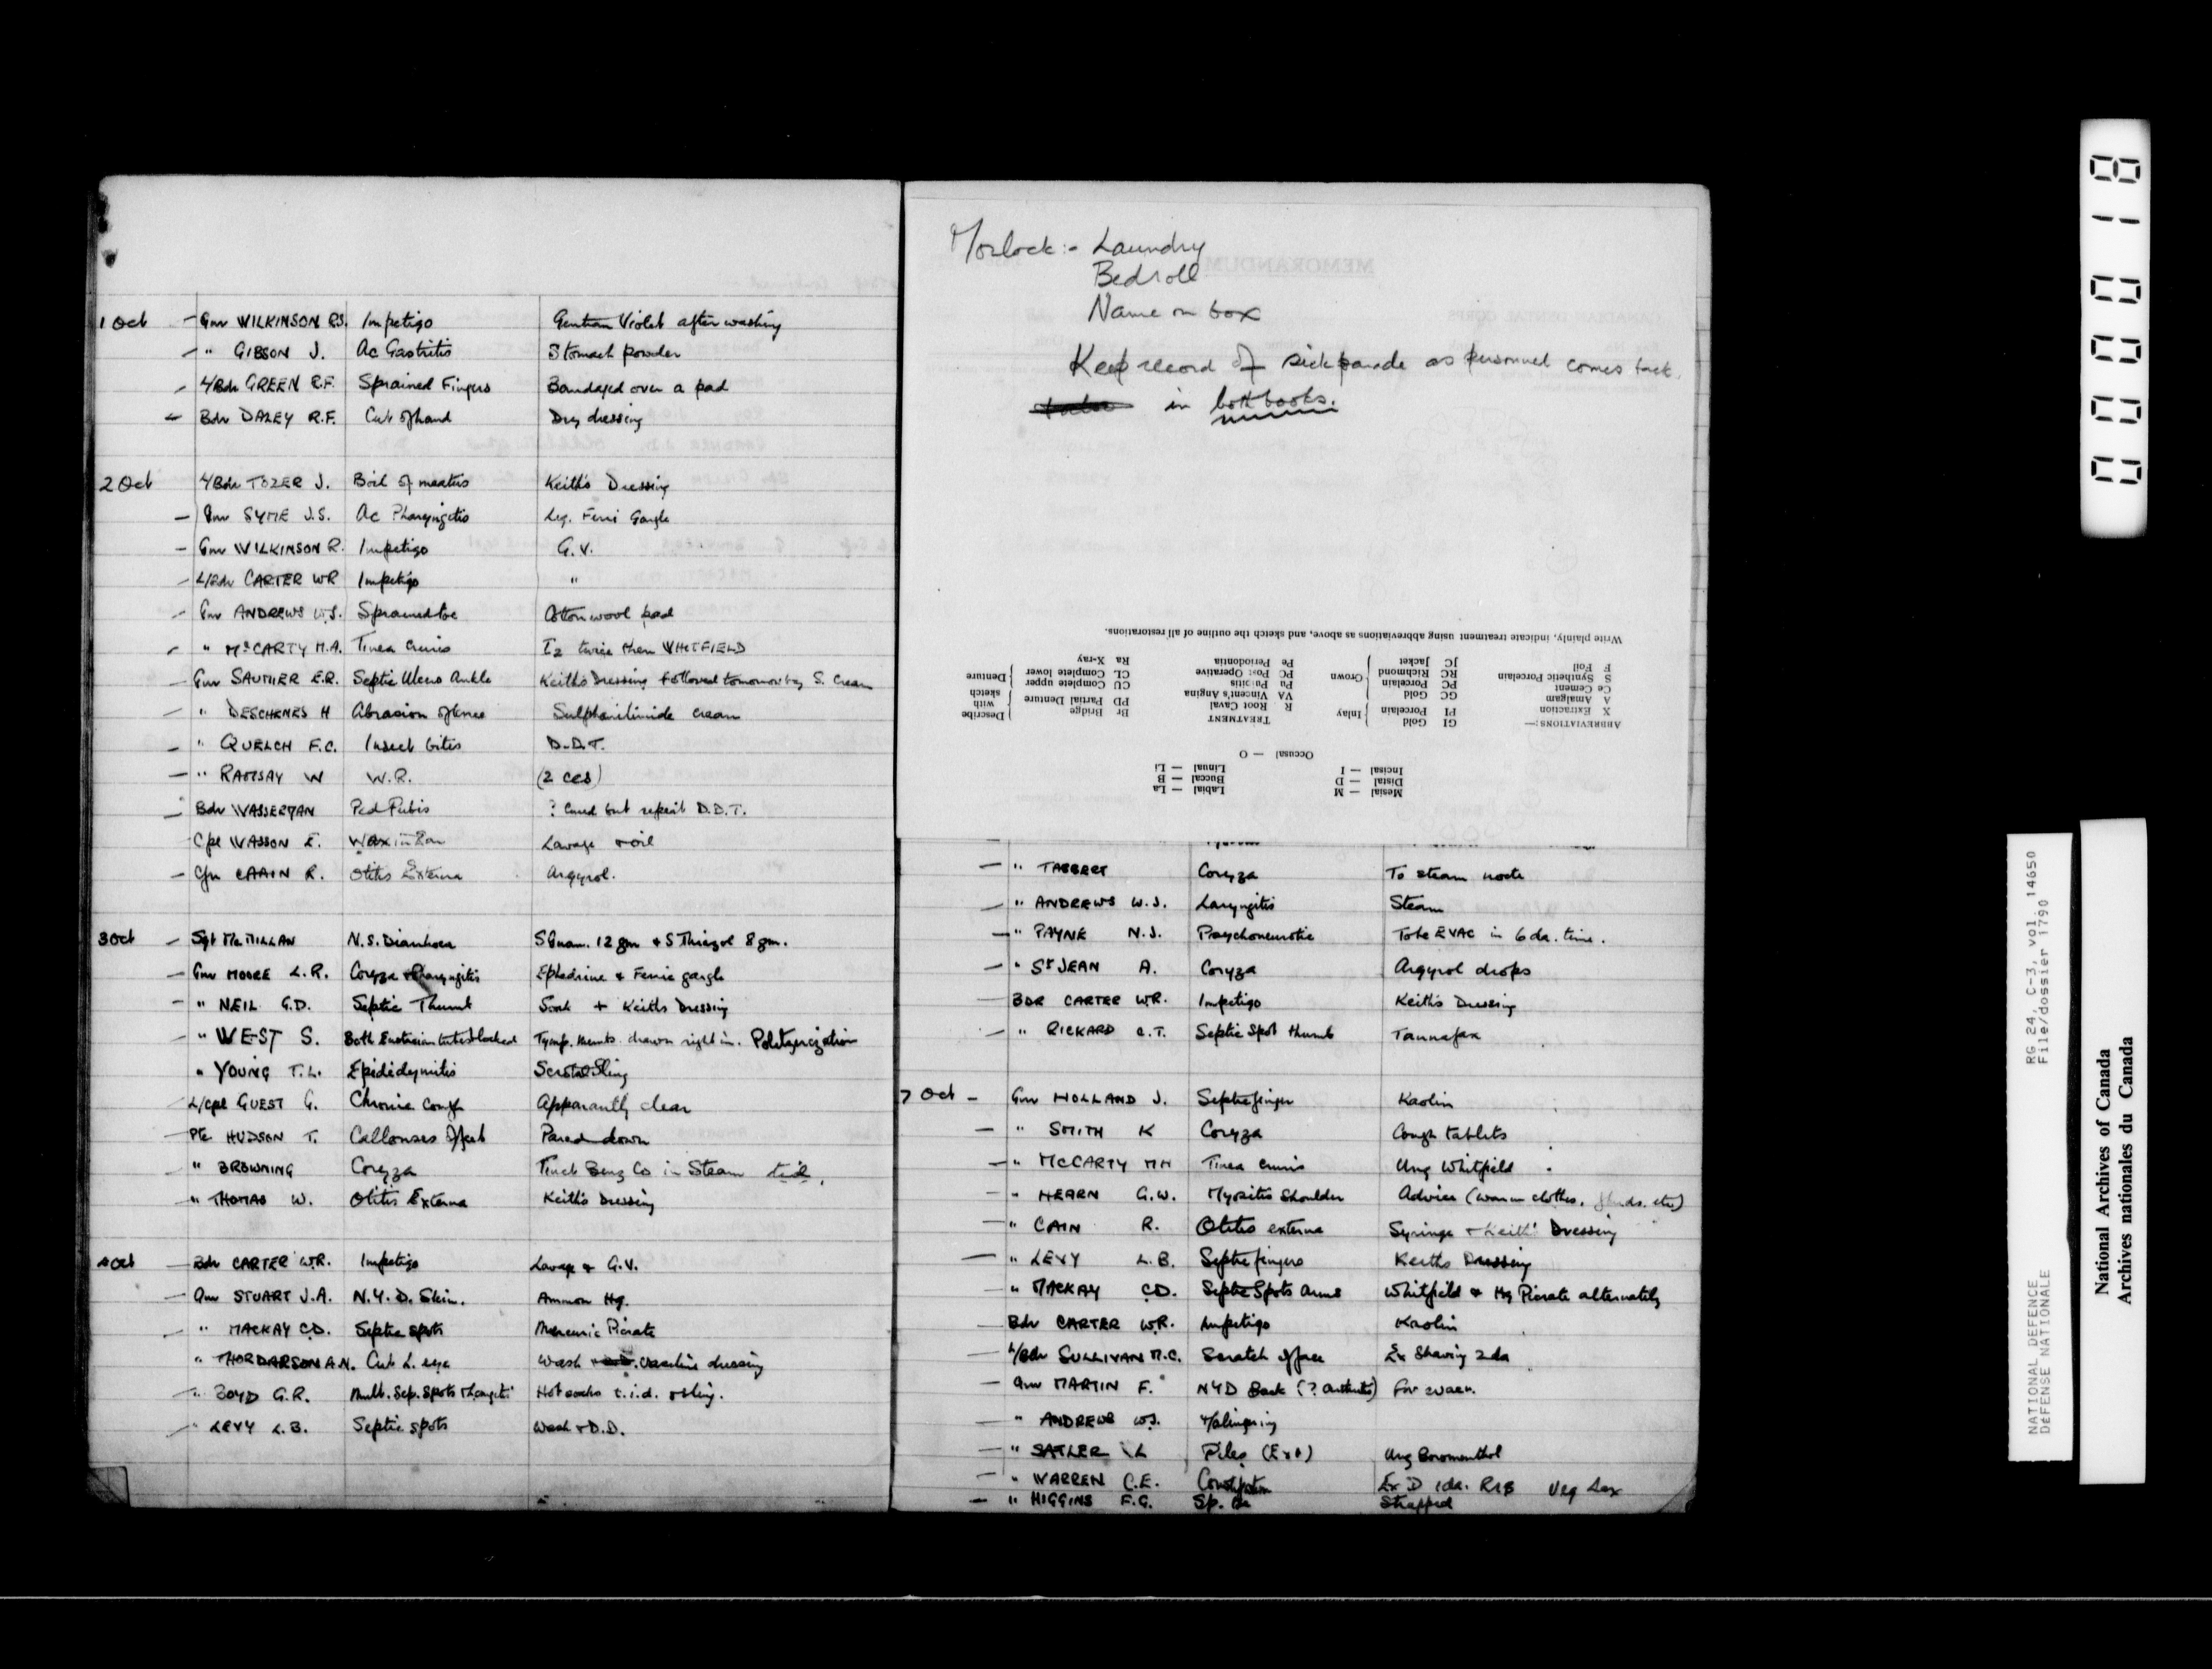 1 Oct — Gnr WILKINSON R.S. Impetigo Gentian Violet after washing
— " GIBSON J. Ac Gastritis Stomach powder
— L/Bdr GREEN R.F. Sprained Fingers Bandaged over a pad
— Bdr DALEY R.F. Cut of hand Dry dressing
2 Oct L/Bdr TOZER J. Boil of meatus Keith's Dressing
— Gnr SYME J.S. Ac Pharyngitis Liq. Ferri Gargle
— Gnr WILKINSON R. Impetigo G.V.
— L/Bdr CARTER WR Impetigo "
— Gnr ANDREWS W.J. Sprained toe Cotton wool pad
— " McCARTY M.A. Tinea Cruris I2 twice then WHITFIELD
— Gnr SAUMIER E.R. Septic Ulcers Ankle Keith's Dressing followed tomorrow by S. Cream
— " DESCHENES H Abrasion of knee Sulphanilimide cream
— " QUELCH F.C. Insect bites D.D.T.
— " RAMSAY W W.R. (2 ccs)
— Bdr WASSERMAN Ped Pubis ? Cured but repeat D.D.T.
Cpl WASSON E. Wax in Ear Lavage + oil
— Cfn CAAIN R. Otitis Externa Argyrol.
3 Oct — Sgt McMILLAN N.S. Diarrhoea S Guan. 12 gm + S Thiazol 8 gm.
— Gnr MOORE L.R. Coryza + Pharyngitis Ephedrine + Ferric gargle
— " NEIL G.D. Septic Thumb Soak + Keiths Dressing
— " WEST S. Both Eustacian tubes blocked Tymp. memb. drawn right in. Politzerization
" YOUNG T.L. Epididymitis Scrotal Sling
— L/Cpl GUEST G. Chronic Cough Apparantly clear
— Pte HUDSON T. Callouses of feet Pared down
— " BROWNING Coryza Tinct Benz Co in Steam t.i.d.
— " THOMAS W. Otitis Externa Keith's Dressing
4 Oct — Bdr CARTER W.R. Impetigo Lavage + G.V.
— Gnr STUART J.A. N.Y.D. Skin. Ammon Hg.
— " MACKAY C.D. Septic spots Mercuric Picrate
" THORDARSON A.N. Cut L. eye Wash + vaseline dressing
— " BOYD G.R. Mult. Sep. Spots Hot soaks t.i.d. + sling.
— " LEVY L.B. Septic spots Wash + D.D.
Morlock:- Laundry
Bedroll
Name on box
Keep record of sick parade as personnel comes back
in both books.
MEMORANDUM
Write plainly, indicate treatment using abbreviations as above, and sketch the outline of all restorations.
ABBREVIATIONS:—
X Extraction
A Amalgam
Ce Cement
S Synthetic Porcelain
F Foil
GI Gold
PI Porcelain
Inlay
GC Gold
PC Porcelain
RC Richmond
JC Jacket
Crown
TREATMENT
R Root Canal
VA Vincent's Angina
Pu Pulpitis
PO Post Operative
Pe Periodontia
Br Bridge
PD Partial Denture
CU Complete upper
CL Complete lower
Ra X-ray
Describe
with
sketch
Denture
Mesial — M
Distal — D
Incisal — I
Labial — La
Buccal — B
Lingual — Li
Occusal — O
— " Coryza To steam
— " ANDREWS W.J. Laryngitis Steam
— " PAYNE N.J. Psychoneurotic To be EVAC in 6 da. time.
— " St JEAN A. Coryza Argyrol drops
— BDR CARTER WR. Impetigo Keith's Dressing
— " RICKARD C.T. Septic Spot thumb Tannafax
7 Oct — Gnr HOLLAND J. Septic finger Kaolin
— " SMITH K Coryza Cough tablets
— " McCARTY MH Tinea Cruris Ung Whitfield
— " HEARN G.W. Myositis Shoulder Advice (warm clothes, fluids. etc)
— " CAIN R. Otitis externa Syringe + Keith' Dressing
— " LEVY L.B. Septic fingers Keiths Dressing
— " MACKAY C.D. Septic Spots Arms Whitfield + Hg Picrate alternately
Bdr CARTER W.R. Impetigo Kaolin
— L/Bdr SULLIVAN M.C. Scratch of face Ex Shaving 2 da
— Gnr MARTIN F. NYD Back (? Arthritis) For evacn.
— " ANDREWS WJ. Malingering
— " SATLER L Piles (Ext) Ung Boromenthol
— " WARREN C.E. Constipation Ex D 1 da. Veg Lax
— " HIGGINS F.G. Sp. Strapped
000018
NATIONAL DEFENCE RG 24, C-3, vol. 14650
DÉFENSE NATIONALE File/dossier 1790
National Archives of Canada
Archives nationales du Canada